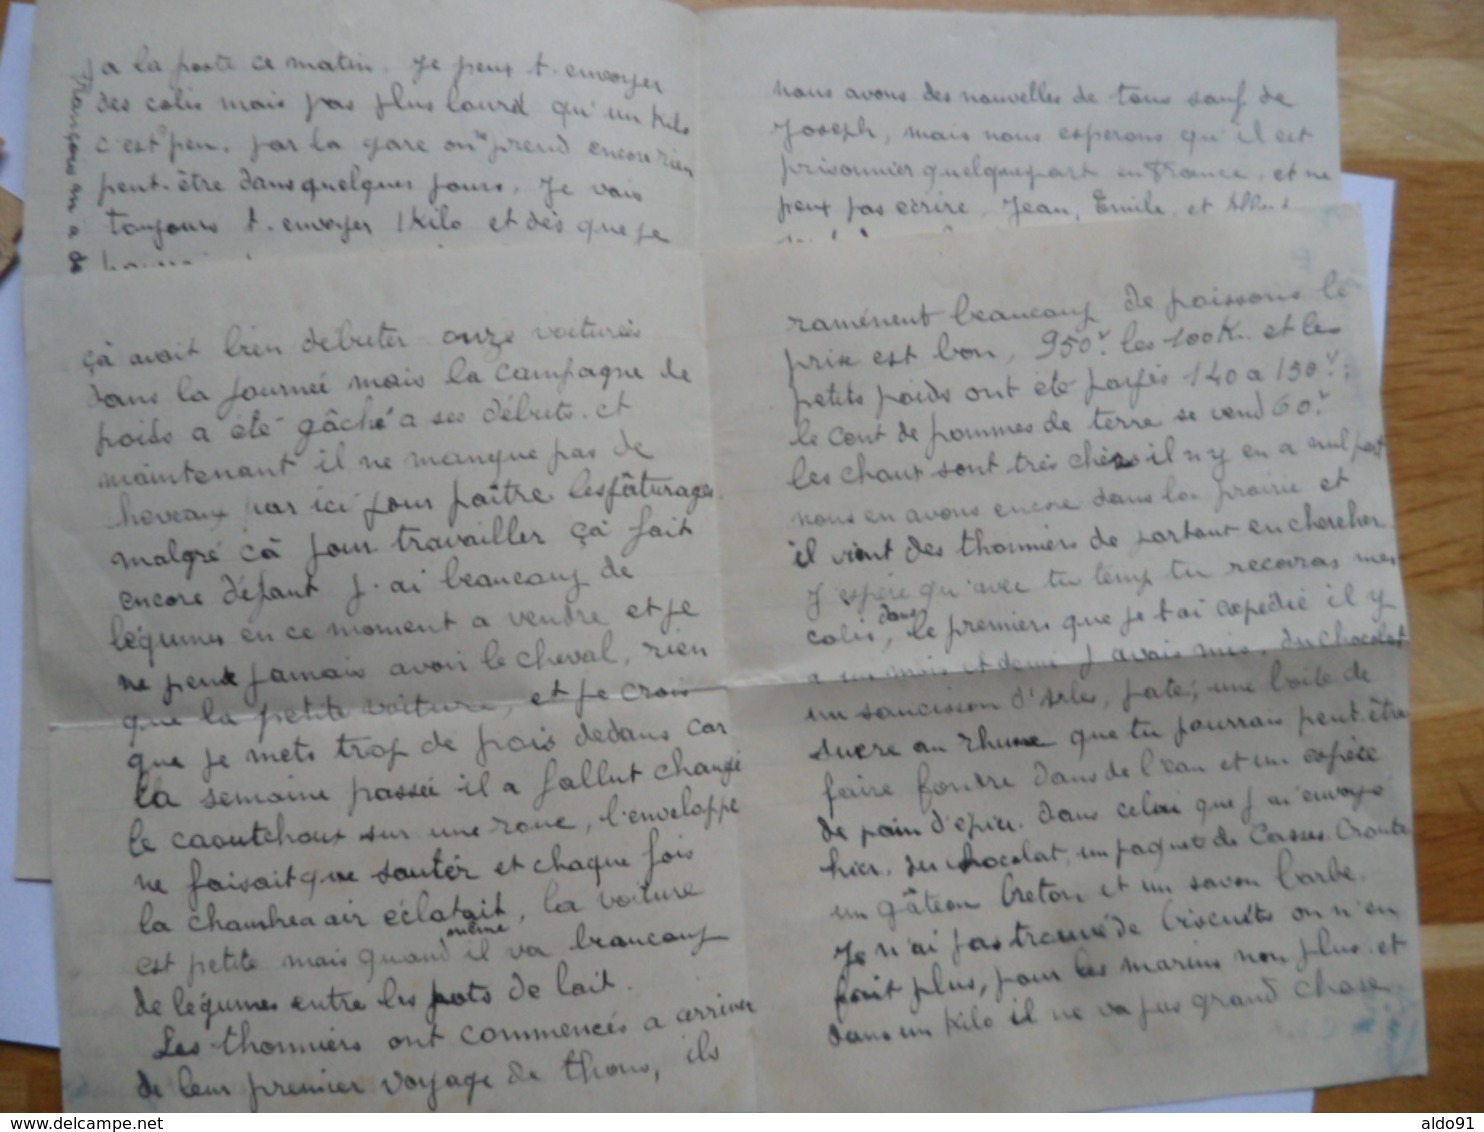 a la poste ce matin. Je peux t. envoyer
des colis mais pas plus lourd qu'un Kilo
c'est peu. par la gare on ne prend encore rien
peut-être dans quelques jours. Je vais
toujours t. envoyer 1 Kilo et dès que je
nous avons des nouvelles de tous sauf de
Joseph, mais nous esperons qu'il est
prisonnier quelquepart en France, et ne
peux pas ecrire. Jean, Emile, et
çà avait bien débuter onze voitures
dans la journeé mais la campagne de
poids a été gâché a ses débuts. et
maintenant il ne manque pas de
cheveaux par ici pour paître les pâturages.
malgré cà pour travailler çà fait
encore défaut j. ai beaucoup de
légumes en ce moment a vendre et je
ne peux jamais avoir le cheval, rien
que la petite voiture, et je crois
que je mets trop de pois dedans car
la semaine passeé il a fallut changé
le caoutchoux sur une roue, l'enveloppe
ne faisait que sauter et chaque fois
la chambre a air éclatait, la voiture
est petite mais quand même il va beaucoup
de légumes entre les pots de lait.
Les thonniers ont commencés a arriver
de leur premier voyage de thons, ils
ramènent beaucoup de poissons le
prix est bon, 950f. les 100K. et les
petits poids ont été payés 140 a 150f.
le cent de pommes de terre se vend 60f.
les choux sont très chers il n'y en a nul part
nous en avons encore dans la prairie et
il vient des thonniers de partout en chercher.
J'espère qu'avec tu temp tu recevras mes
colis, dans le premiers que je t'ai expédié il y
a un mois et demi j'avais mis, du chocolat
un saucisson d'Arles, paté, une boite de
sucre au rhume que tu pourrais peut-être
faire fondre dans de l'eau et un espèce
de pain d'epice. dans celui que j'ai envoyé
hier. du chocolat, un paquet de Casse Croute
un gâteau breton et un savon barbe.
Je n'ai pas trouvé de biscuits on n'en
fait plus, pour les marins non plus. et
dans un Kilo il ne va pas grand chose.
delcampe.net
aldo91